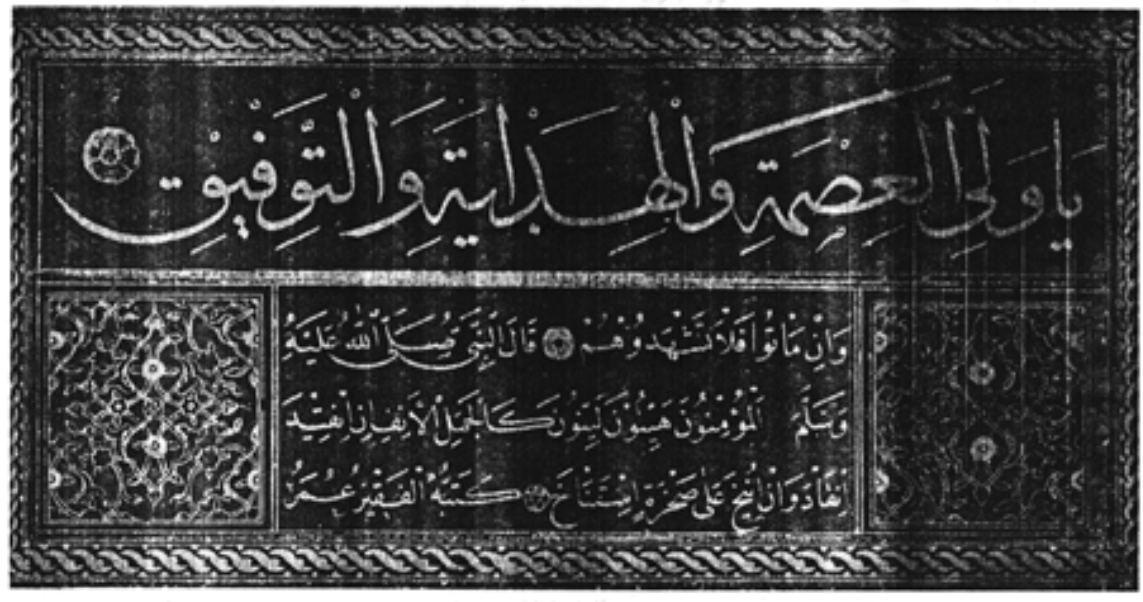 يَا وَلِيَّ الْعِصْمَةِ وَالْهِدَايَةِ وَالتَّوْفِيقِ
وَاِنْ مَاتُوا فَلَا تَشْهَدُوهُمْ قَالَ النَّبِيُّ صَلَّى اللّٰهُ عَلَيْهِ
وَسَلَّمَ الْمُؤْمِنُونَ هَيِّنُونَ لَيِّنُونَ كَالْجَمَلِ الْاَنِفِ اِنْ اُقْتِيدَ
اِنْقَادَ وَاِنْ اُنِيخَ عَلٰى صَخْرَةٍ اِسْتَنَاخَ كَتَبَهُ الْفَقِيرُ عُمَرُ